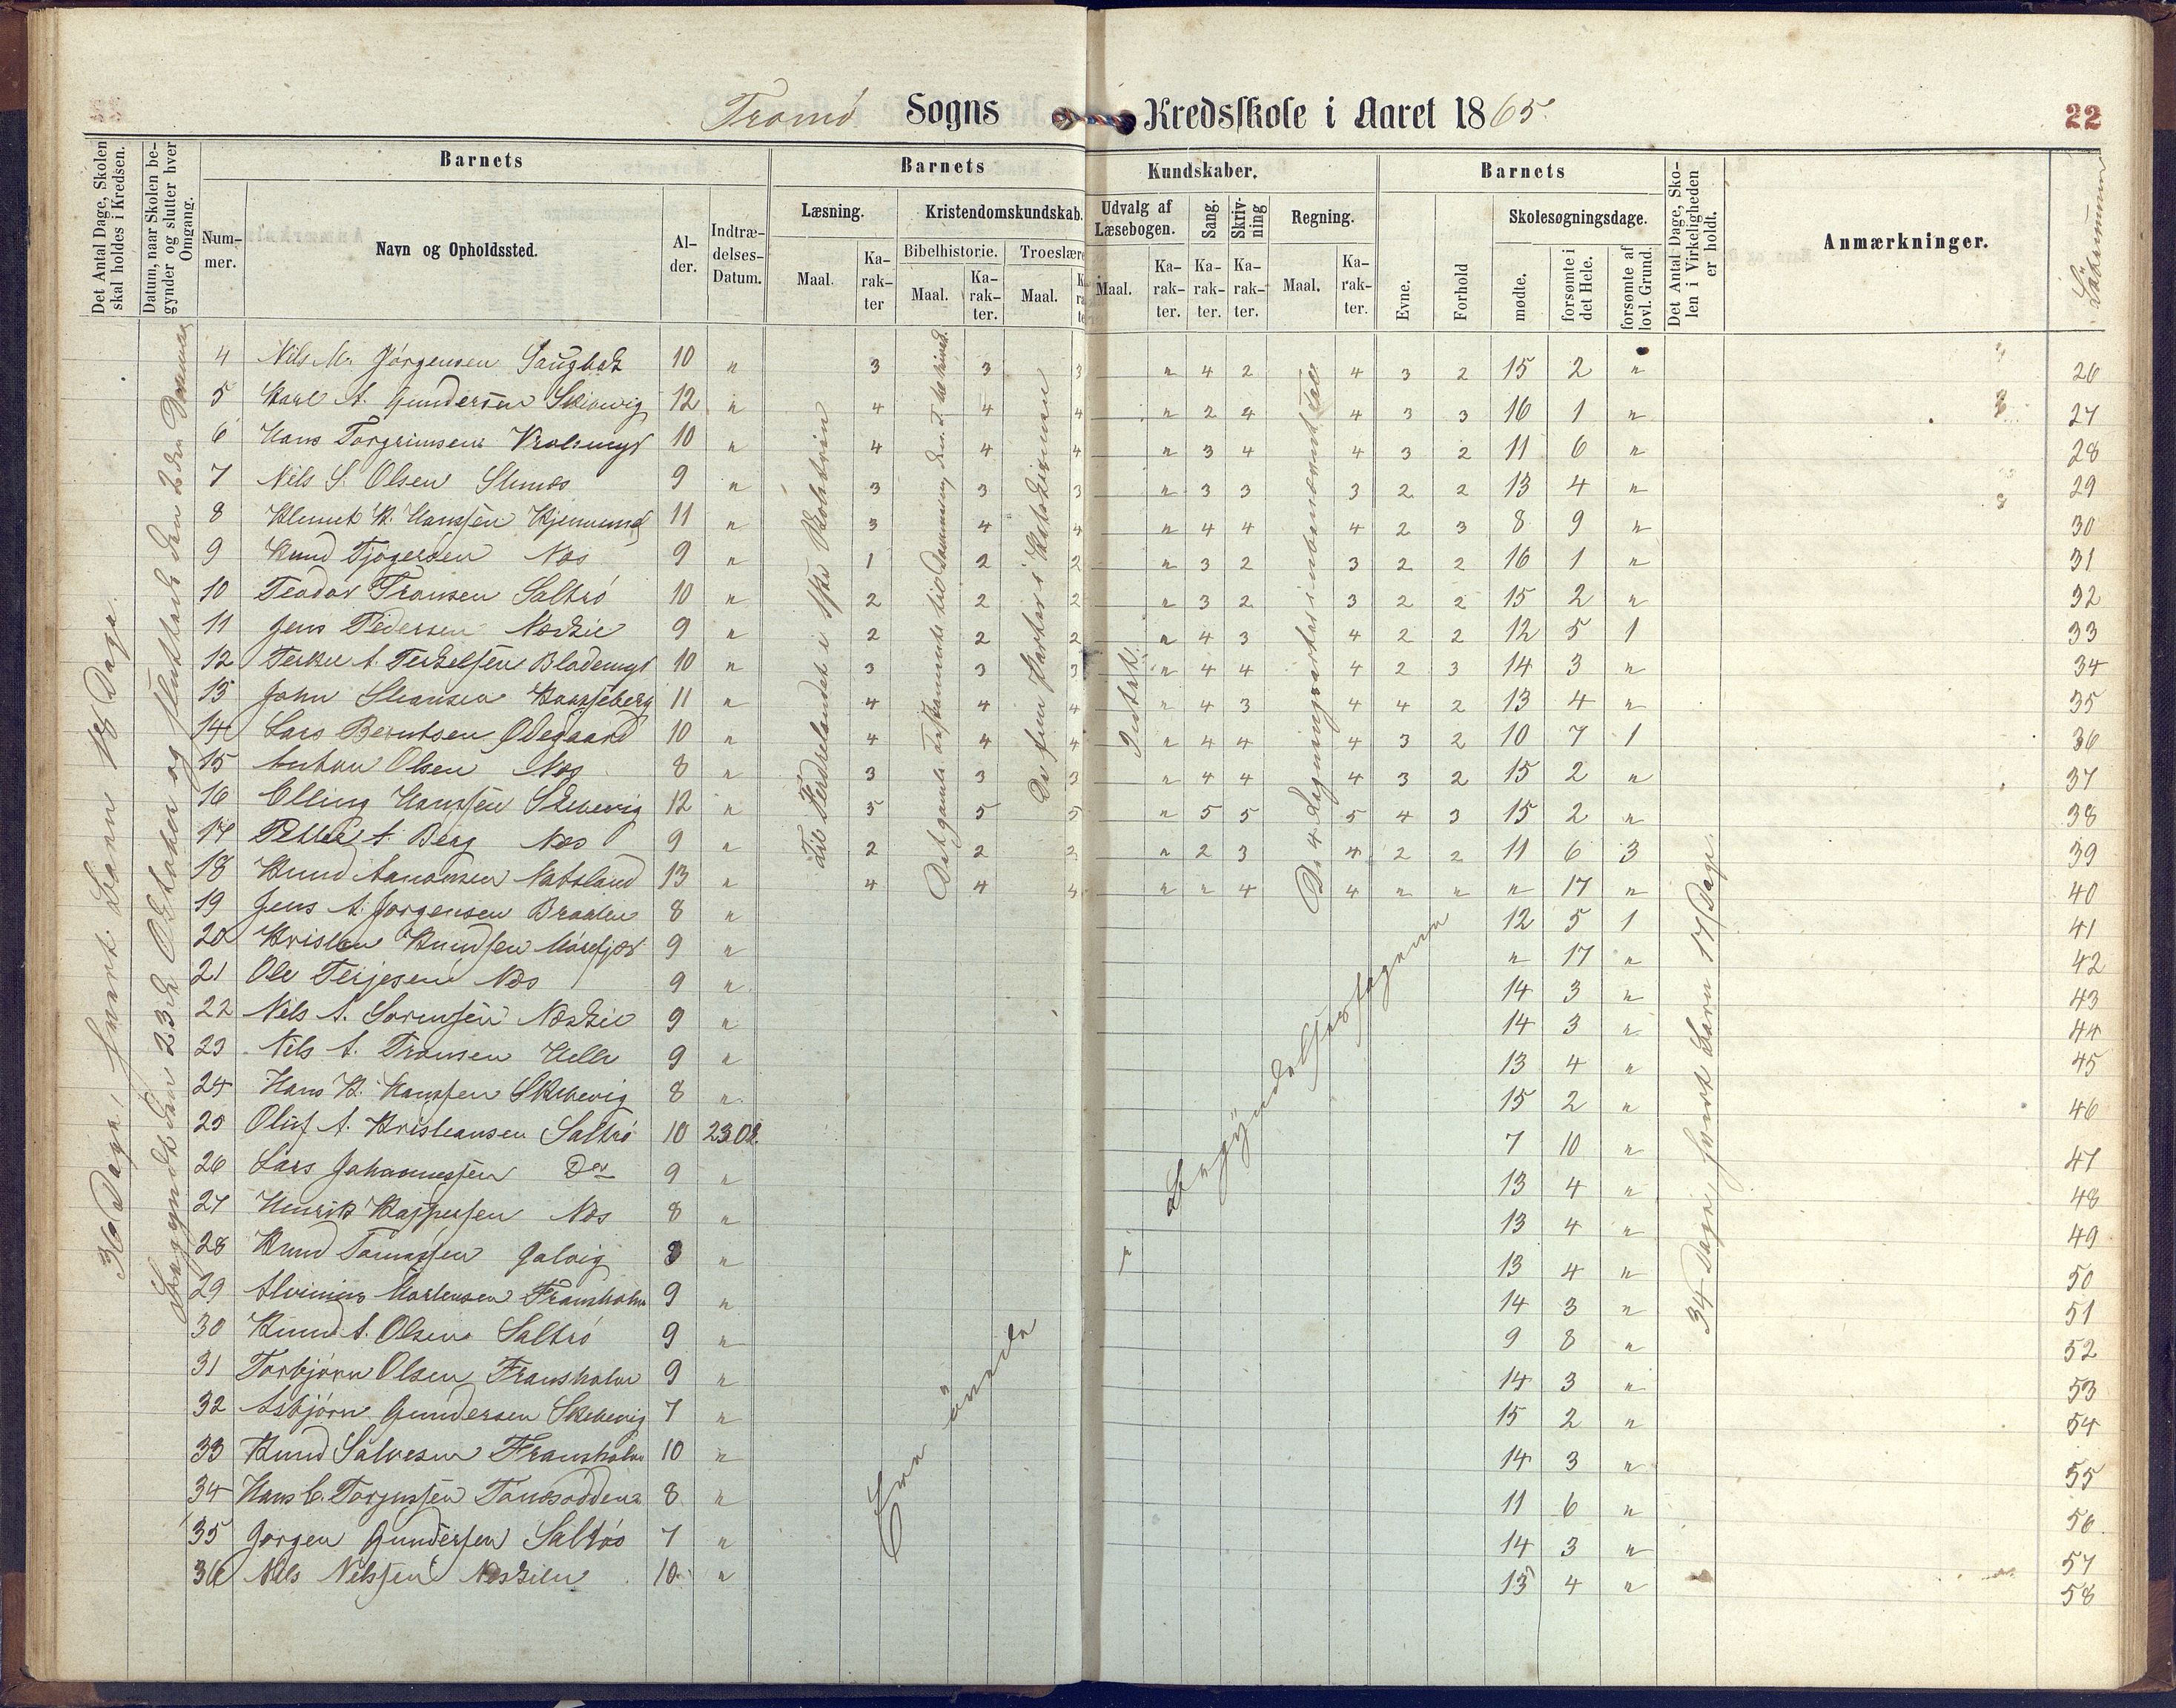 Tromö Sogns Kredsskole i Aaret 1865. 22
Det Antal Dage, Skolen skal holdes i Kredsen.
Datum, naar Skolen begynder og slutter hver Omgang.
Barnets
Nummer.
Navn og Opholdssted.
Alder.
Indtrædelses-Datum.
Barnets Kundskaber.
Læsning.
Maal.
Karakter
Kristendomskundskab.
Bibelhistorie.
Maal.
Karakter.
Troeslære
Maal.
Udvalg af Læsebogen.
Maal.
Karakter.
Sang.
Karakter.
Skrivning
Karakter.
Regning.
Maal.
Karakter.
Barnets
Evne.
Forhold
Skolesøgningsdage.
mødte.
forsømte i det Hele.
forsømte af lovl. Grund.
Det Antal Dage, Skolen i Virkeligheden er holdt.
Anmærkninger.
36 Dage, hvert Barn 18 Dage.
Begyndt den 23de Oktober og sluttet den 2den
Til Fædrelandet i
Det gamle Testamente til
De fem Parter i Katekismen
De 4 Regningsarter i ubenævnte Tal
34 Dage, hvert Barn 17 Dage.
4 Nils M. Jörgensen 10 " 3 3 3 " 4 2 4 3 2 15 2 " 26
5 Karl A. Gundersen Skibevig 12 " 4 4 4 " 2 4 4 3 3 16 1 " 27
6 Hans Torgrimsen 10 " 4 4 4 " 3 4 4 3 2 11 6 " 28
7 Nils S. Olsen 9 " 3 3 3 " 3 3 3 2 2 13 4 " 29
8 K. Hanssen 11 " 3 4 4 " 4 4 4 2 3 8 9 " 30
9 Knud Næs 9 " 1 2 2 " 3 2 3 2 2 16 1 " 31
10 Teodor Fransen Saltrö 10 " 2 2 2 " 3 2 3 2 2 15 2 " 32
11 Jens Pedersen 9 " 2 2 2 " 4 3 4 2 2 12 5 1 33
12 A. Terkelsen 10 " 3 3 3 " 4 4 4 2 3 14 3 " 34
13 John 11 " 4 4 4 " 4 3 4 4 2 13 4 " 35
14 Lars Berntsen Ödegaard 10 " 4 4 4 " 4 4 4 3 2 10 7 1 36
15 Anton Olsen Næs 8 " 3 3 3 " 4 4 4 3 2 15 2 " 37
16 Hanssen Skibevig 12 " 5 5 5 " 5 5 5 4 3 15 2 " 38
17 A. Berg Næs 9 " 2 2 2 " 2 3 4 2 2 11 6 3 39
18 Knud Aanonsen 13 " 4 4 4 " " 4 4 " " " 17 " 40
19 Jens A. Jörgensen 8 " 12 5 1 41
20 Kristen Knudsen 9 " " 17 " 42
21 Ole Terjesen Næs 9 " 14 3 " 43
22 Nils A. Sörensen 9 " 14 3 " 44
23 Nils A. Fransen Helle 9 " 13 4 " 45
24 Hans K. Hanssen Skibevig 8 " 15 2 " 46
25 Oluf A. Kristiansen Saltrö 10 23 Ok. 7 10 " 47
26 Lars Johannessen Do 9 " 13 4 " 48
27 Henrik Kaspersen Næs 8 " 13 4 " 49
28 Knud Tomassen 8 " 13 4 " 50
29 Martensen Fransholm 9 " 14 3 " 51
30 Knud A. Olsen Saltrö 9 " 9 8 " 52
31 Torbjörn Olsen Fransholm 9 " 14 3 " 53
32 Asbjörn Gundersen Skibevig 7 " 15 2 " 54
33 Knud Salvesen Fransholm 10 " 14 3 " 55
34 Hans 8 " 11 6 " 56
35 Jörgen Gundersen Saltrö 7 " 14 3 " 57
36 Nils Nilssen 10 " 13 4 " 58
Ere övede i Begyndelsesfagene